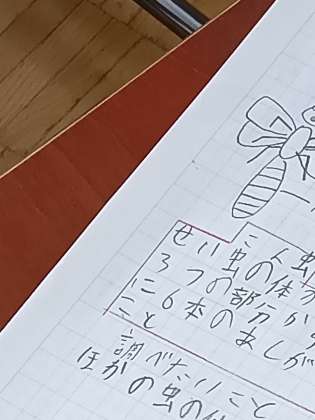 こん虫
せい虫の体
3つの部分か
に6本のあしが
こと
調べたいこと
ほかの虫の